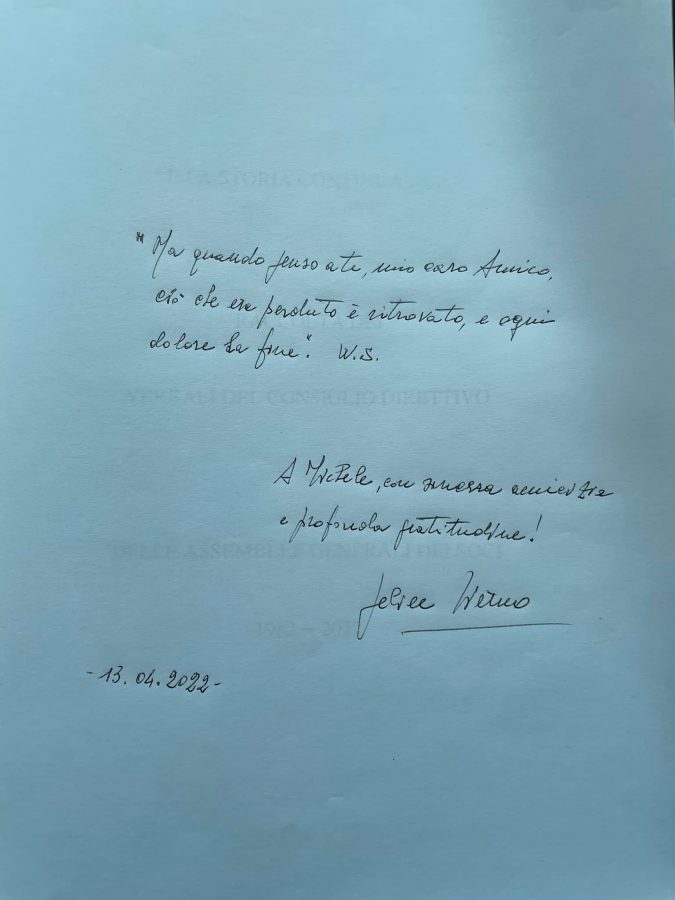 "Ma quando penso a te, mio caro Amico,
ciò che era perduto è ritrovato, e ogni
dolore ha fine". W.S.
A Michele, con amicizia
e profonda gratitudine!
Felice
- 13.04.2022 -
"E LA STORIA CONTINUA
VERBALI DEL CONSIGLIO DIRETTIVO
DELLE ASSEMBLEE GENERALI DEI SOCI